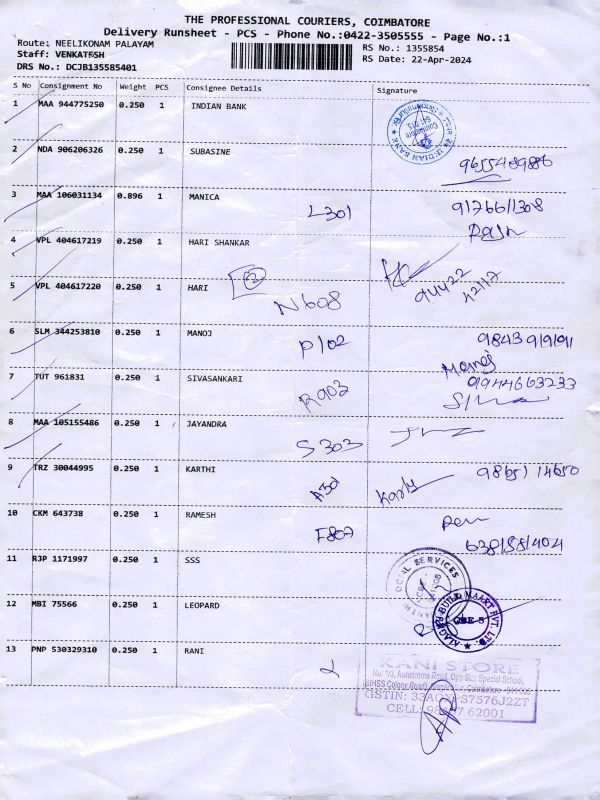 THE PROFESSIONAL COURIERS, COIMBATORE
Delivery Runsheet - PCS - Phone No.:0422-3505555 - Page No.:1
Route: NEELIKONAM PALAYAM
RS No.: 1355854
Staff: VENKATESH
RS Date: 22-Apr-2024
DRS No.: DCJB135585401
S No Consignment No Weight PCS Consignee Details Signature
1 MAA 944775250 0.250 1 INDIAN BANK
INDIAN BANK
2 NDA 906206326 0.250 1 SUBASINE
3 MAA 106031134 0.896 1 MANICA
L301
4 VPL 404617219 0.250 1 HARI SHANKAR
94422
42117
5 VPL 404617220 0.250 1 HARI
2
N608
6 SLM 344253810 0.250 1 MANOJ
P102
Manoj
7 TUT 961831 0.250 1 SIVASANKARI
9944663233
R903
8 MAA 105155486 0.250 1 JAYANDRA
S303
9 TRZ 30044995 0.250 1 KARTHI
98651 14650
A301
10 CKM 643738 0.250 1 RAMESH
F807
11 RJP 1171997 0.250 1 SSS
SERVICES
12 MBI 75566 0.250 1 LEOPARD
BUILD MAART PVT. LTD
13 PNP 530329310 0.250 1 RANI
RANI STORE
No. 1/3, Aerodrome Road, Opp Star Special School,
GSTIN:
CELL:
62001